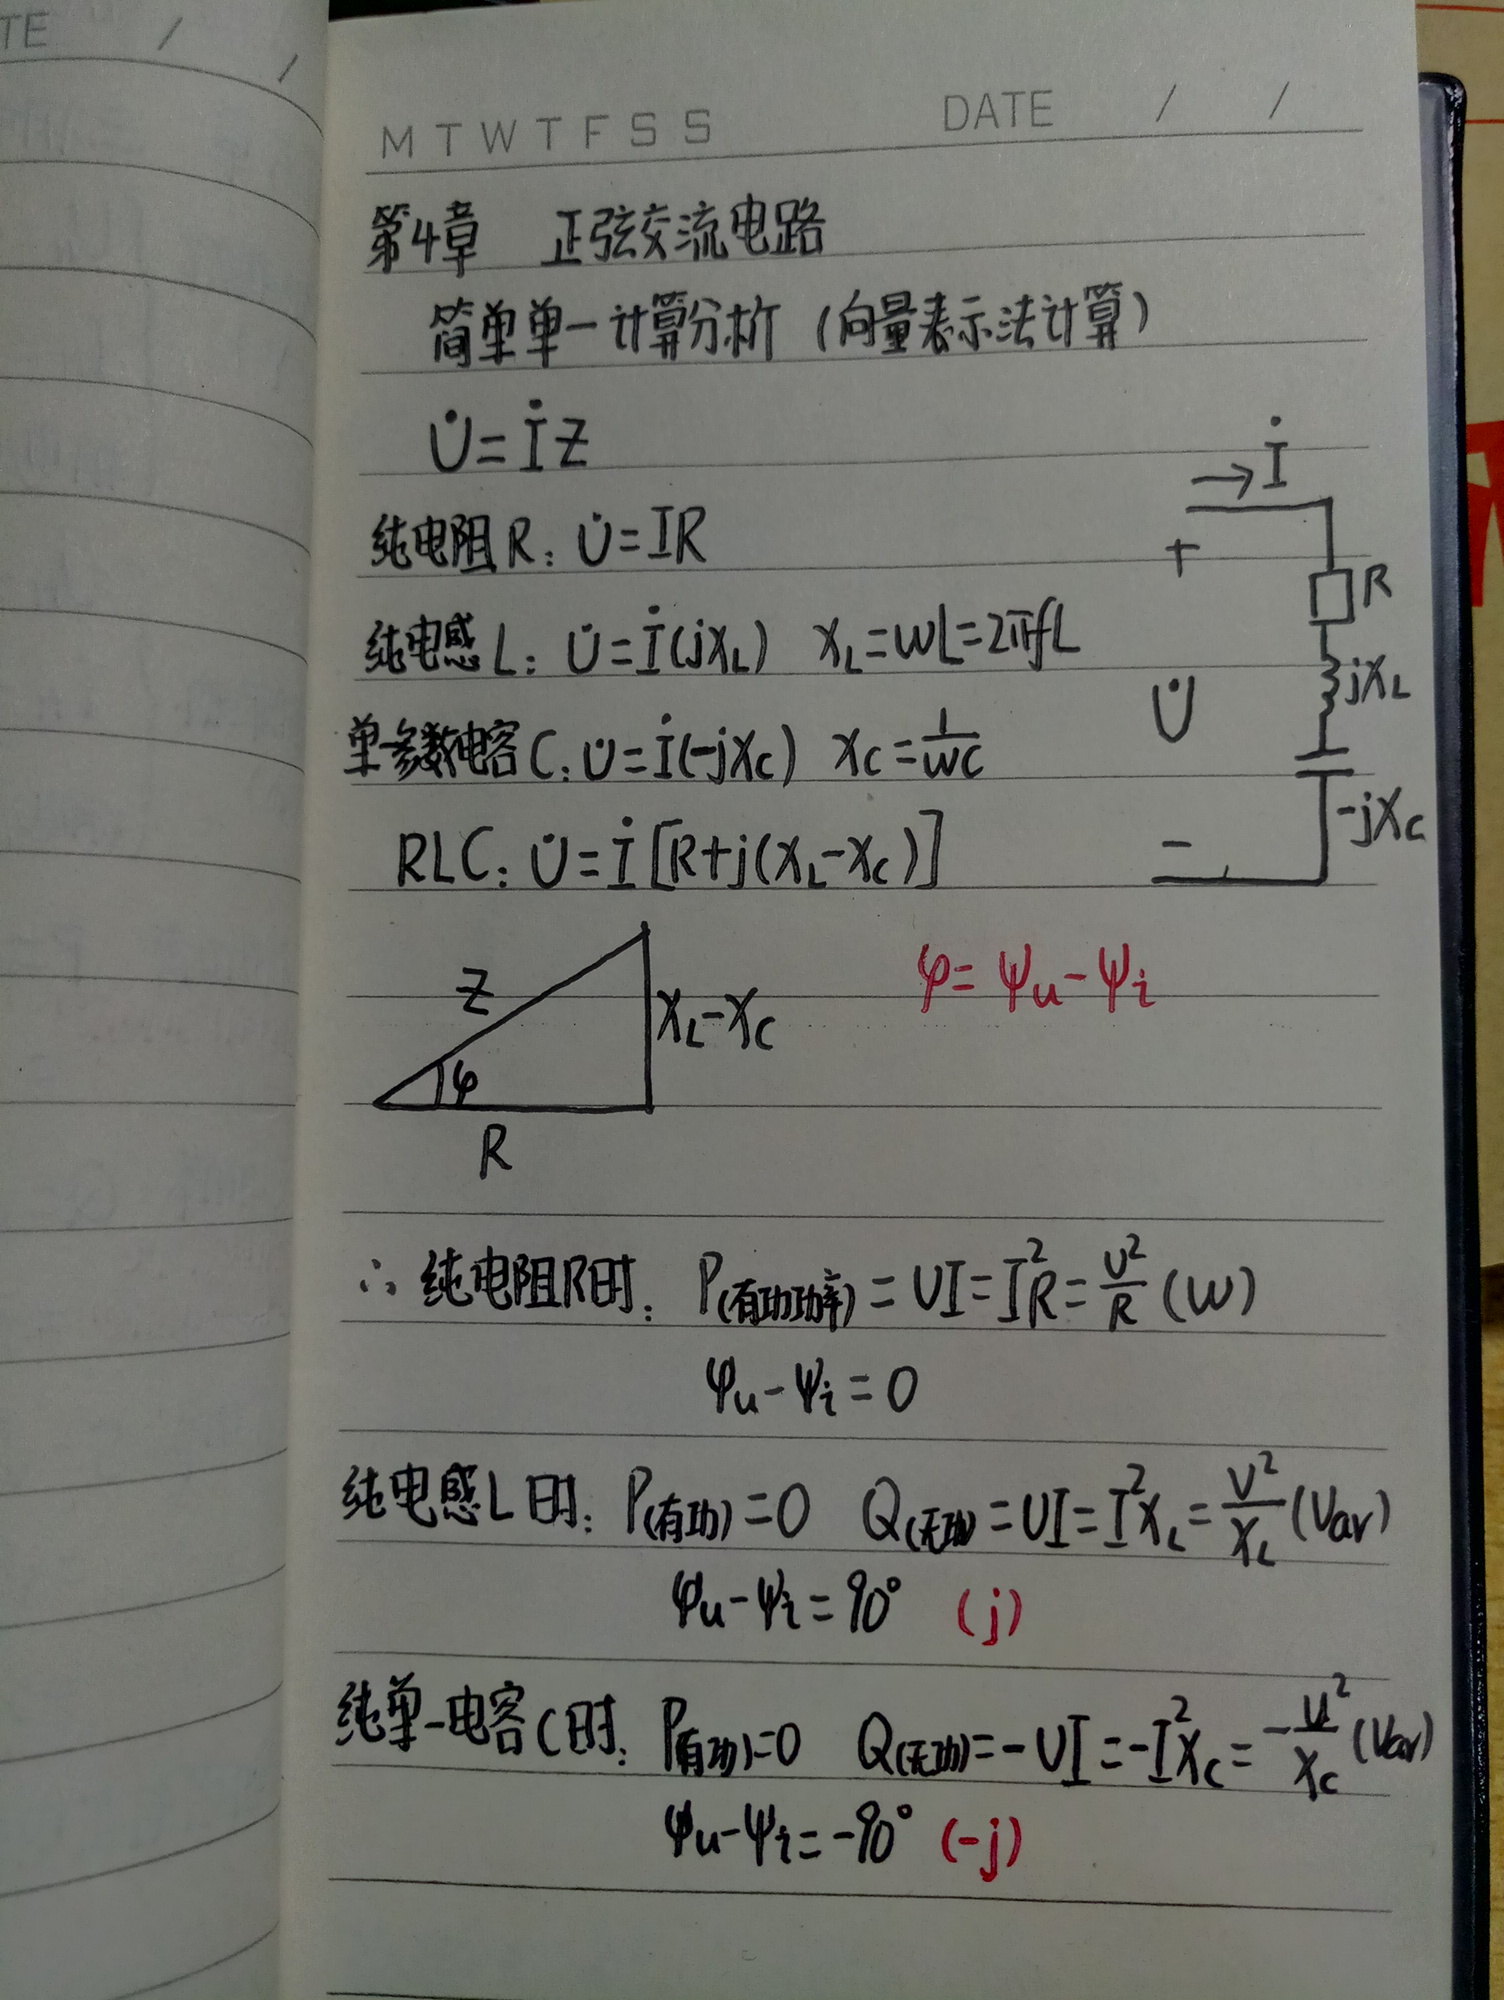 TE / /
M T W T F S S DATE / /
第4章 正弦交流电路
简单单一计算分析（向量表示法计算）
U̇=İZ
İ
纯电阻R: U̇=IR
+
R
纯电感L: U̇=İ(jXL) XL=WL=2πfL
jXL
U̇
单一参数电容C: U̇=İ(-jXc) Xc=1/WC
-jXc
RLC: U̇=İ[R+j(XL-Xc)]
-
Z
XL-Xc
φ=ψu-ψi
φ
R
∴纯电阻R时: P(有功功率)=UI=I²R=U²/R (W)
ψu-ψi=0
纯电感L时: P(有功)=0 Q(无功)=UI=I²XL=U²/XL (Var)
ψu-ψi=90° (j)
纯单一电容C时: P(有功)=0 Q(无功)=-UI=-I²Xc=-U²/Xc (Var)
ψu-ψi=-90° (-j)